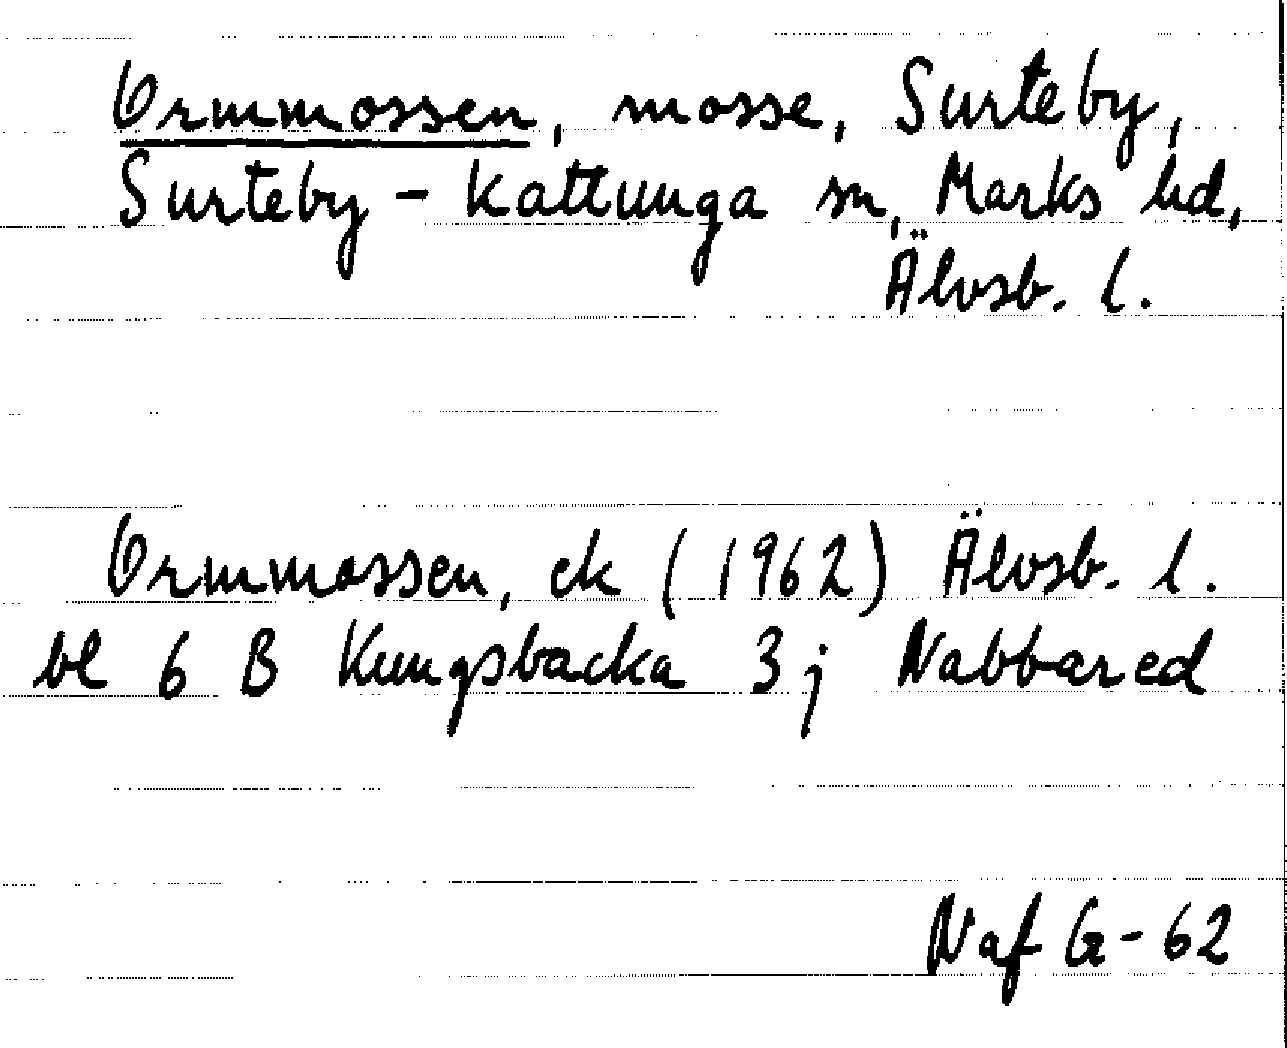 Ormmossen, mosse, Surteby,
Surteby - Kattunga sn, Marks hd,
Älvsb. l.
Ormmossen, ek (1962) Älvsb. l.
bl 6 B Kungsbacka 3 j Nabbared
Naf G - 62